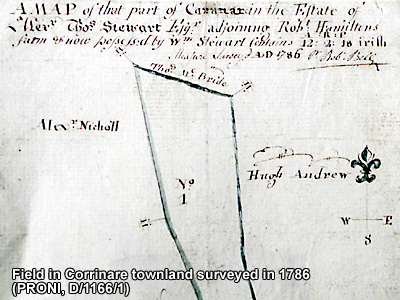 A MAP of that part of Caranar in the Estate of
Alexr. Thos. Stewart Esqr. adjoining Robt. Hamiltons
farm & now possessed by Wm. Stewart Contains 12:2:18 irish
A R P
Measure Surveyed A.D 1786 Pr. Robt. Bell
Thos. Mc. Bride
Alexr. Nicholl
No.
1
Hugh Andrew
W E
S
Field in Corrinare townland surveyed in 1786
(PRONI, D/1166/1)